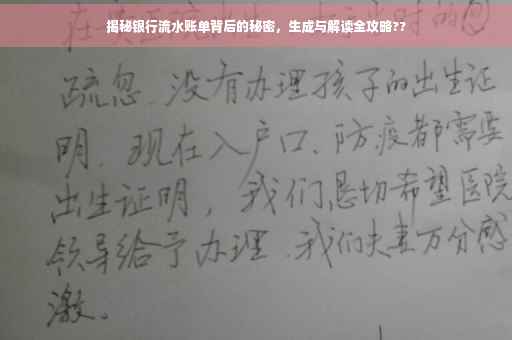 揭秘银行流水账单背后的秘密，生成与解读全攻略??
疏忽.没有办理孩子的出生证
明.现在入户口、防疫都需要
出生证明，我们恳切希望医院
领导给予办理.我们夫妻万分感
激。